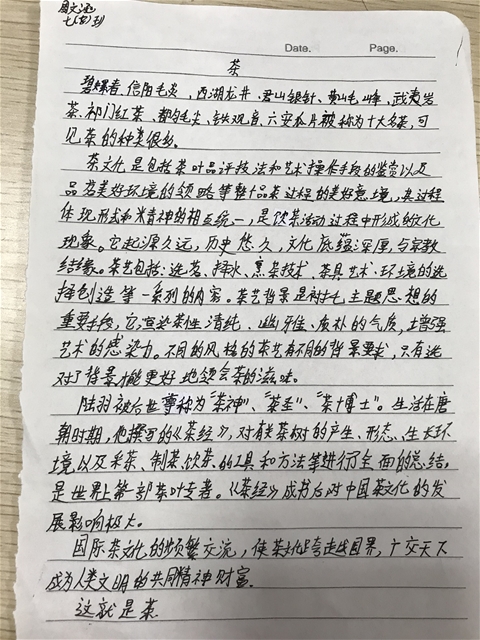 周文涵
七(7)班
Date. Page.
茶
碧螺春、信阳毛尖、西湖龙井、君山银针、黄山毛峰、武夷岩
茶、祁门红茶、都匀毛尖、铁观音、六安瓜片被称为十大名茶,可
见茶的种类很多。
茶文化是包括茶叶品评技法和艺术操作手段的鉴赏以及
品茗美好环境的领略等整个品茶过程的美好意境,其过程
体现形式和精神的相互统一,是饮茶活动过程中形成的文化
现象。它起源久远,历史悠久,文化底蕴深厚,与宗教
结缘。茶艺包括:选茗、择水、烹茶技术、茶具艺术、环境的选
择创造等一系列的内容。茶艺背景是衬托主题思想的
重要手段,它渲染茶性清纯、幽雅、质朴的气质,增强
艺术的感染力。不同的风格的茶艺有不同的背景要求,只有选
对了背景才能更好地领会茶的滋味。
陆羽被后世尊称为“茶神”、“茶圣”、“茶博士”。生活在唐
朝时期,他撰写的《茶经》,对有关茶树的产生、形态、生长环
境以及采茶、制茶、饮茶的工具和方法等进行了全面的总结,
是世界上第一部茶叶专著。《茶经》成书后对中国茶文化的发
展影响极大。
国际茶文化的频繁交流,使茶文化跨越国界,广交天下
成为人类文明的共同精神财富.
这就是茶.